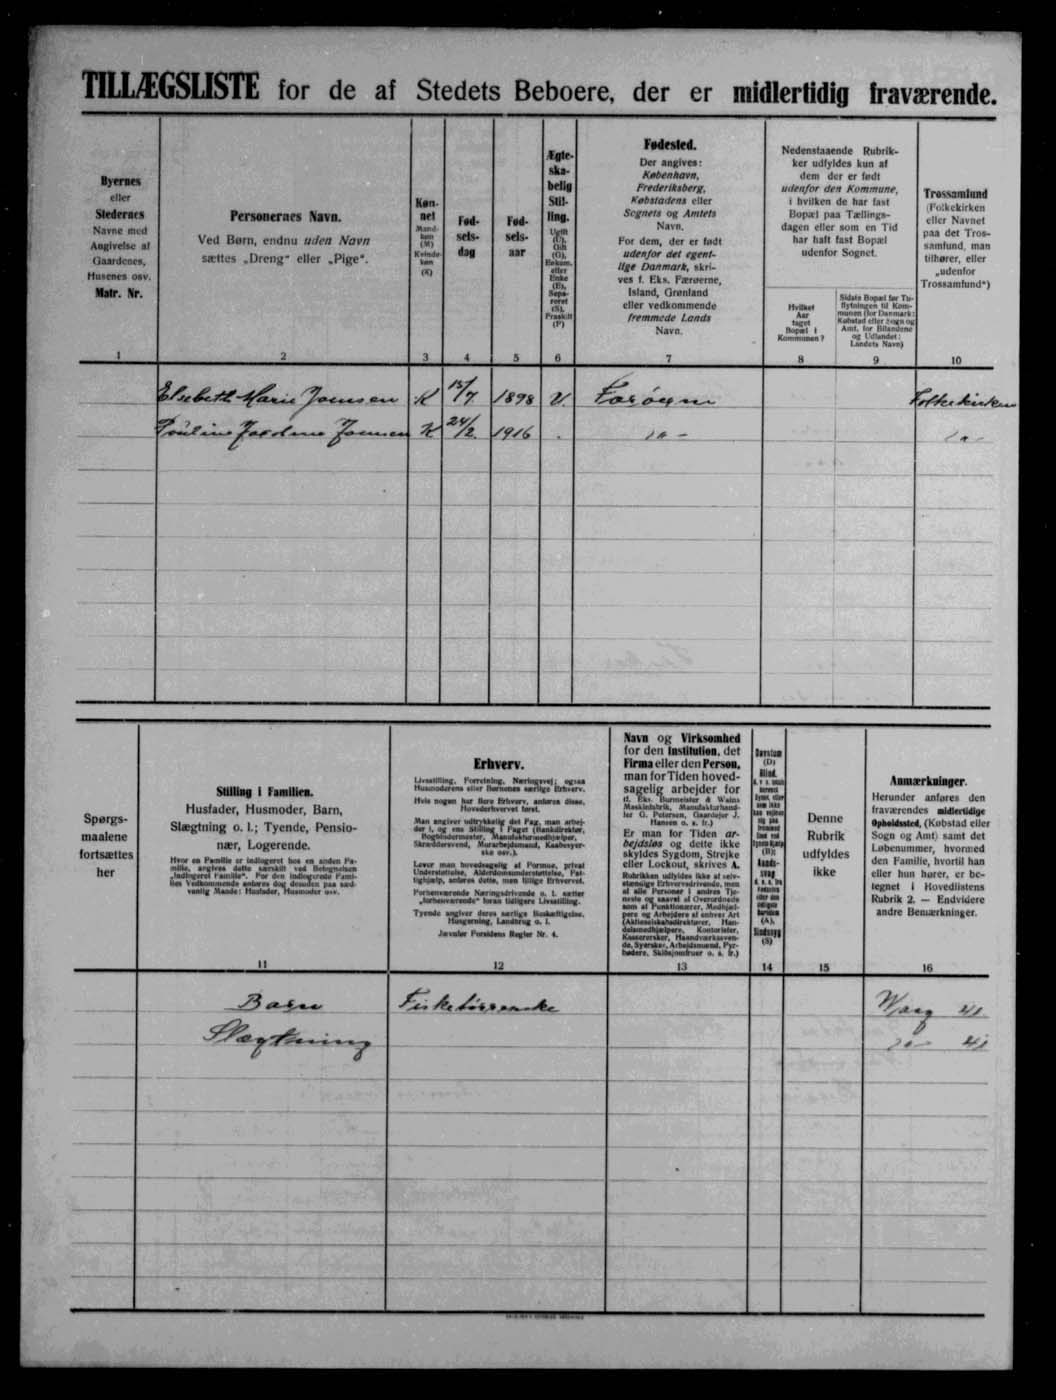 TILLÆGSLISTE for de af Stedets Beboere, der er midlertidig fraværende.
Byernes
eller
Stedernes
Navne med
Angivelse af
Gaardenes,
Husenes osv.
Matr. Nr.
1
Personernes Navn.
Ved Børn, endnu uden Navn
sættes „Dreng“ eller „Pige“.
2
Køn-
net
Mand-
køn
(M)
Kvinde-
køn
(K)
3
Fød-
sels-
dag
4
Fød-
sels-
aar
5
Ægte-
ska-
belig
Stil-
ling.
Ugift
(U),
Gift
(G),
Enkem.
eller
Enke
(E),
Sepa-
reret
(S),
Fraskilt
(F)
6
Fødested.
Der angives:
København,
Frederiksberg,
Købstadens eller
Sognets og Amtets
Navn.
For dem, der er født
udenfor det egent-
lige Danmark, skri-
ves f. Eks. Færøerne,
Island, Grønland
eller vedkommende
fremmede Lands
Navn.
7
Nedenstaaende Rubrik-
ker udfyldes kun af
dem der er født
udenfor den Kommune,
i hvilken de har fast
Bopæl paa Tællings-
dagen eller som en Tid
har haft fast Bopæl
udenfor Sognet.
Hvilket
Aar
taget
Bopæl i
Kommunen?
8
Sidste Bopæl før Til-
flytningen til Kom-
munen (for Danmark:
Købstad eller Sogn og
Amt, for Bilandene
og Udlandet:
Landets Navn)
9
Trossamfund
(Folkekirken
eller Navnet
paa det Tros-
samfund, man
tilhører, eller
„udenfor
Trossamfund“)
10
Elsebeth Marie Joensen K 15/7 1898 U. Færøerne Folkekirken
K 24/2. 1916 - -"- -"-
Spørgs-
maalene
fortsættes
her
Stilling i Familien.
Husfader, Husmoder, Barn,
Slægtning o. l.; Tyende, Pensio-
nær, Logerende.
Hvor en Familie er indlogeret hos en anden Fa-
milie, angives dette særskilt ved Betegnelsen
„indlogeret Familie“. For den indlogerede Fami-
lies Vedkommende anføres dog desuden paa sæd-
vanlig Maade: Husfader, Husmoder osv.
11
Erhverv.
Livsstilling, Forretning, Næringsvej; ogsaa
Husmoderens eller Børnenes særlige Erhverv.
Hvis nogen har flere Erhverv, anføres disse,
Hovederhvervet først.
Man angiver udtrykkelig det Fag, man arbej-
der i, og ens Stilling i Faget (Bankdirektør,
Bogbindermester, Manufakturmedhjælper,
Skræddersvend, Murarbejdsmand, Kaabesyer-
ske osv.).
Lever man hovedsagelig af Formue, privat
Understøttelse, Alderdomsunderstøttelse, Fat-
tighjælp, anføres dette, men tillige Erhvervet.
Forhenværende Næringsdrivende o. l. sætter
„forhenværende“ foran tidligere Livsstilling.
Tyende angiver deres særlige Beskæftigelse,
Husgerning, Landbrug o. l.
Jævnfør Forsidens Regler Nr. 4.
12
Navn og Virksomhed
for den Institution, det
Firma eller den Person,
man for Tiden hoved-
sagelig arbejder for
(f. Eks. Burmeister & Wains
Maskinfabrik, Manufakturhand-
ler G. Petersen, Gaardejer J.
Hansen o. s. fr.)
Er man for Tiden ar-
bejdsløs og dette ikke
skyldes Sygdom, Strejke
eller Lockout, skrives A.
Rubrikken udfyldes ikke af selv-
stændige Erhvervsdrivende, men
af alle Personer i andres Tje-
neste og saavel af Overordnede
som af Funktionærer, Medhjæl-
pere og Arbejdere af enhver Art
(Aktieselskabsdirektører, Han-
delsmedhjælpere, Kontorister,
Kassererskor, Haandværkssven-
de, Syersker, Arbejdsmænd, Fyr-
bødere, Skibsjomfruer o. s. fr.)
13
Døvstum
(D)
Blind,
(B);
Aands-
svag
(A),
Sindssyg
(S)
14
Denne
Rubrik
udfyldes
ikke
15
Anmærkninger.
Herunder anføres den
fraværendes midlertidige
Opholdssted, (Købstad eller
Sogn og Amt) samt det
Løbenummer, hvormed
den Familie, hvortil han
eller hun hører, er be-
tegnet i Hovedlistens
Rubrik 2. — Endvidere
andre Bemærkninger.
16
Barn Waag 41
Slægtning -"- 41